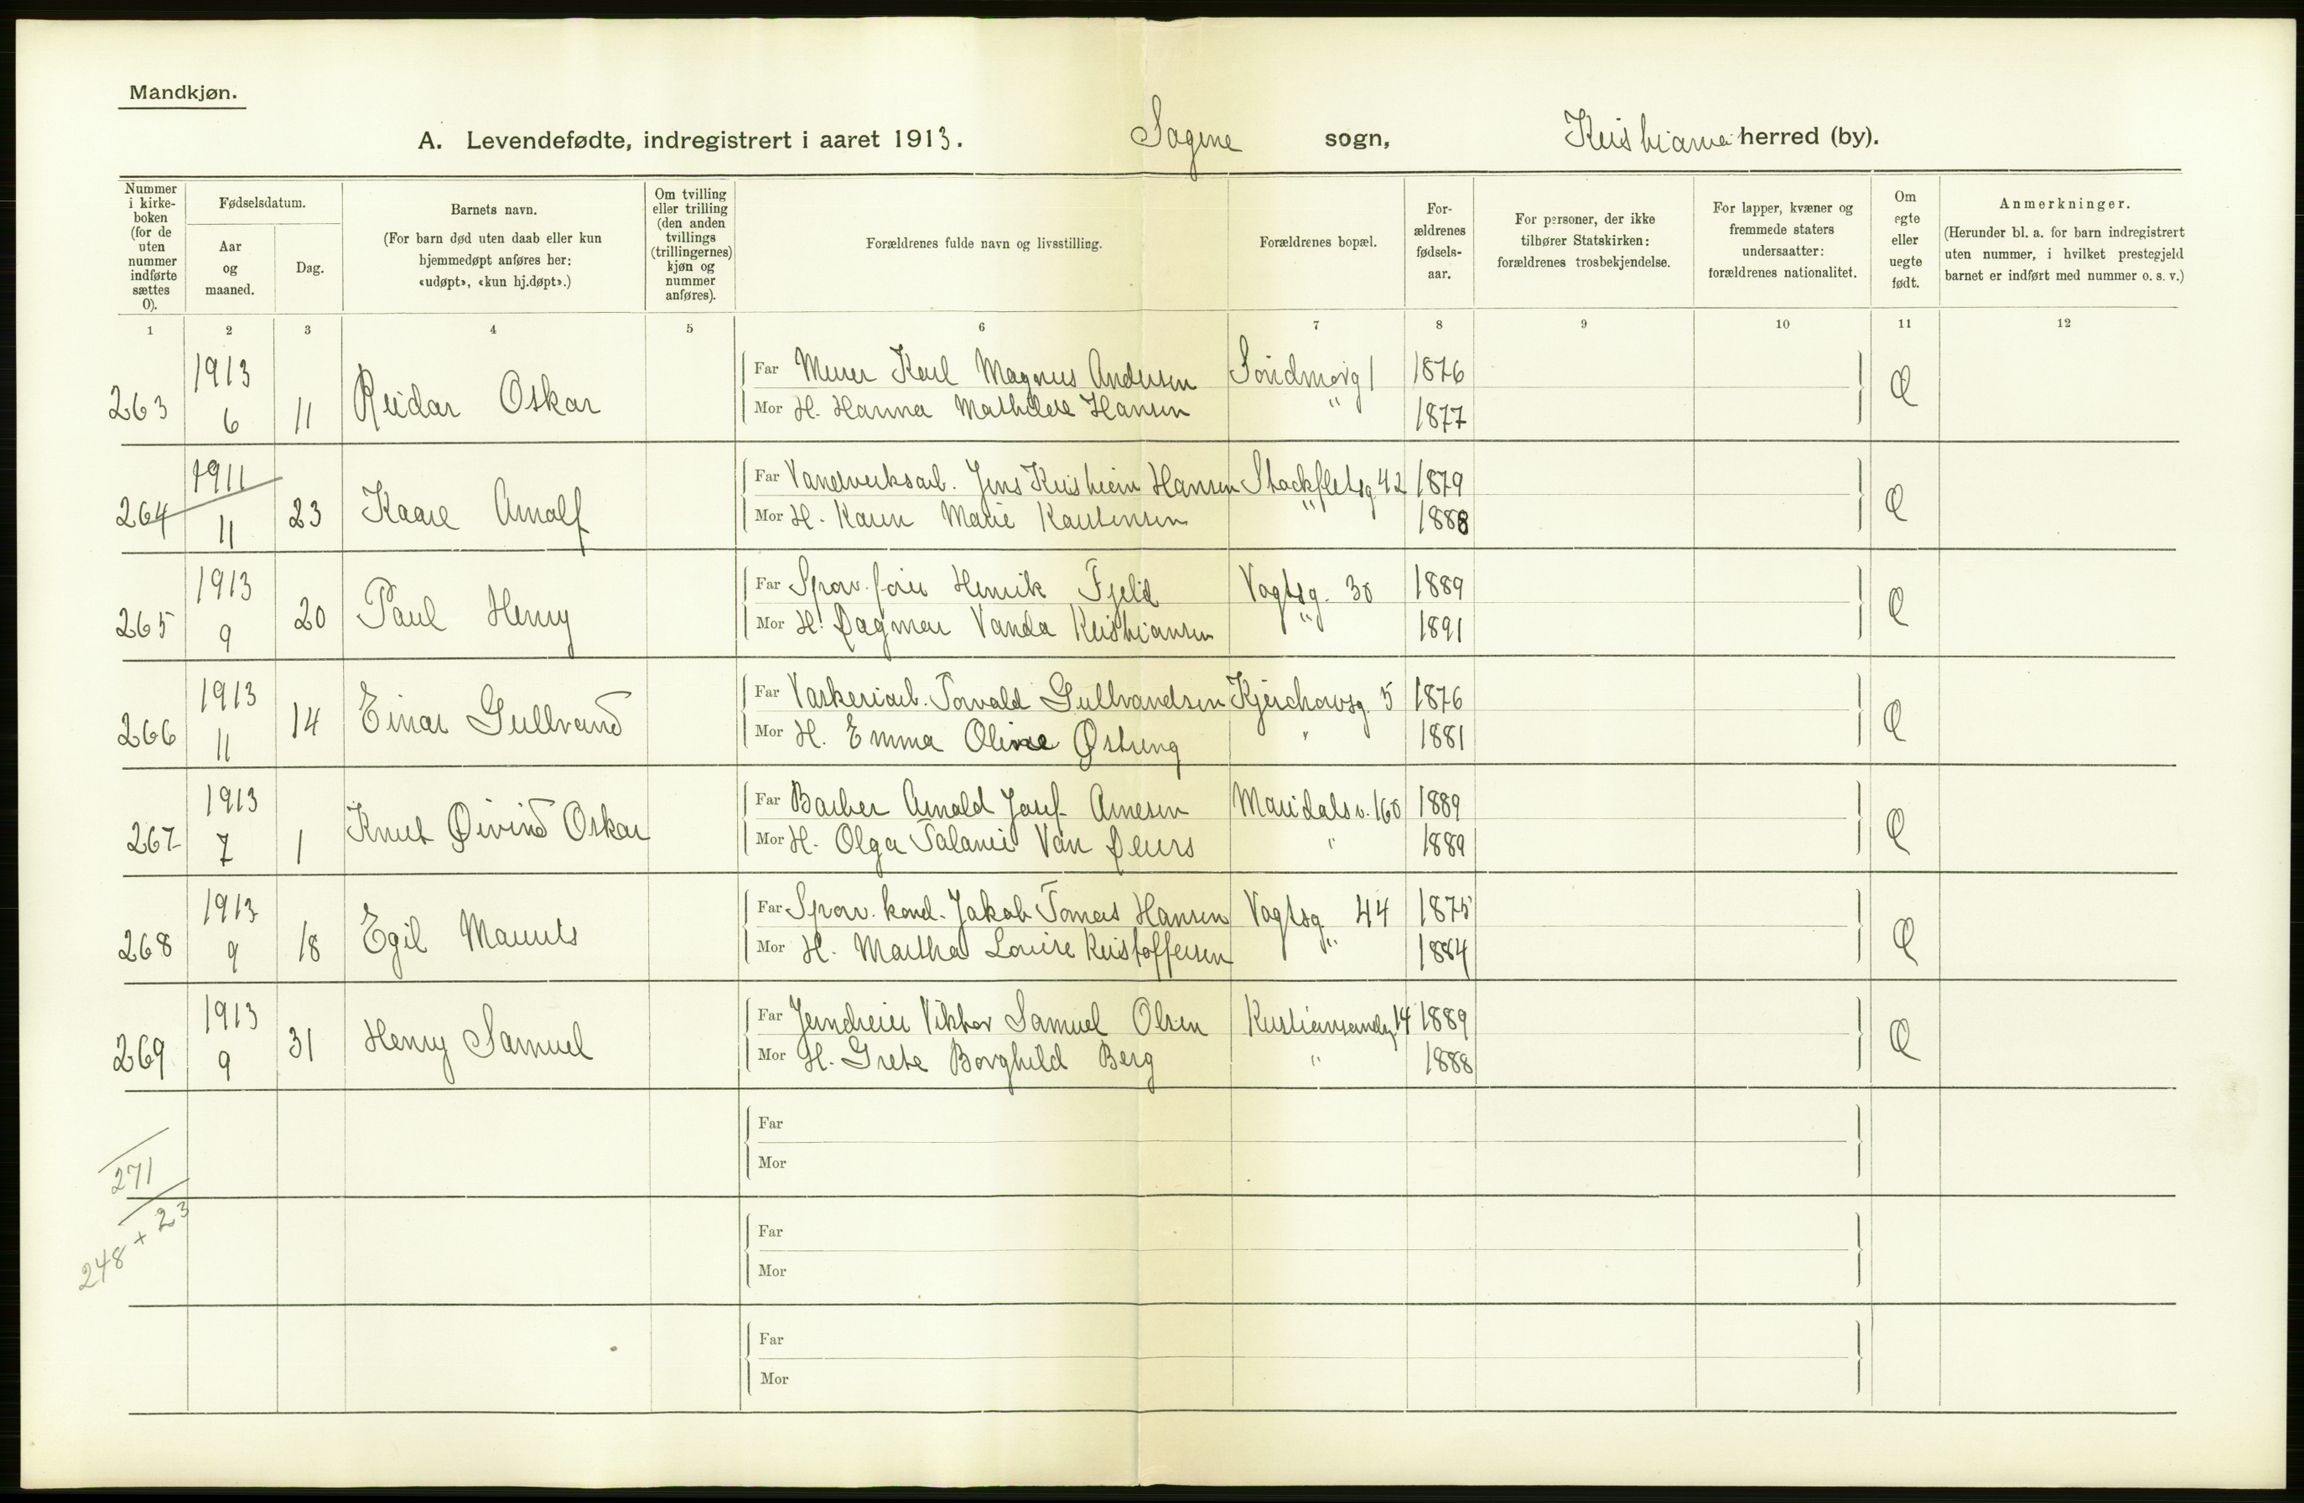 Mandkjøn.
A. Levendefødte, indregistrert i aaret 1913. Sagene sogn, Kristiania herred (by).
Nummer i kirkeboken (for de uten nummer indførte sættes 0).
Fødselsdatum.
Aar og maaned.
Dag.
Barnets navn.
(For barn død uten daab eller kun hjemmedøpt anføres her: «udøpt», «kun hj.døpt».)
Om tvilling eller trilling (den anden tvillings (trillingernes) kjøn og nummer anføres).
Forældrenes fulde navn og livsstilling.
Forældrenes bopæl.
Forældrenes fødselsaar.
For personer, der ikke tilhører Statskirken: forældrenes trosbekjendelse.
For lapper, kvæner og fremmede staters undersaatter: forældrenes nationalitet.
Om egte eller uegte født.
Anmerkninger.
(Herunder bl. a. for barn indregistrert uten nummer, i hvilket prestegjeld barnet er indført med nummer o. s. v.)
1 2 3 4 5 6 7 8 9 10 11 12
263 1913 6 11 Reidar Oskar
Far Murer Karl Magnus Andersen 1876 Æ
Mor H. Hanna Mathilde Hansen " 1877
264 1911 11 23 Kaare Arnolf
Far Vandverksarb. Jens Kristian Hansen Stockfletsg 42 1879 Æ
Mor H. Karen Marie Karstensen " 1888
265 1913 9 20 Paul Henry
Far Sporv. fører Henrik Fjeld Vogtsg. 30 1889 Æ
Mor H. Dagmar Vanda Kristiansen " 1891
266 1913 11 14 Einar Gullvand
Far Vaskeriarb. Torvald Gullvandsen Kjerchowsg. 5 1876 Æ
Mor H. Emma Oline Østreng " 1881
267 1913 7 1 Knut Øivind Oskar
Far Barber Arnold Josef Arnesen Maridalsv. 160 1889 Æ
Mor H. Olga Van Deurs " 1889
268 1913 9 18 Egil Maurits
Far Sporv. kond. Jakob Tomas Hansen Vogtsg. 44 1875 Æ
Mor H. Martha Louise Kristoffersen " 1884
269 1913 9 31 Henry Samuel
Far Jerndreier Viktor Samuel Olsen Kristiansandsg 14 1889 Æ
Mor H. Grete Borghild Berg " 1888
Far
Mor
271
248 + 23
Far
Mor
Far
Mor